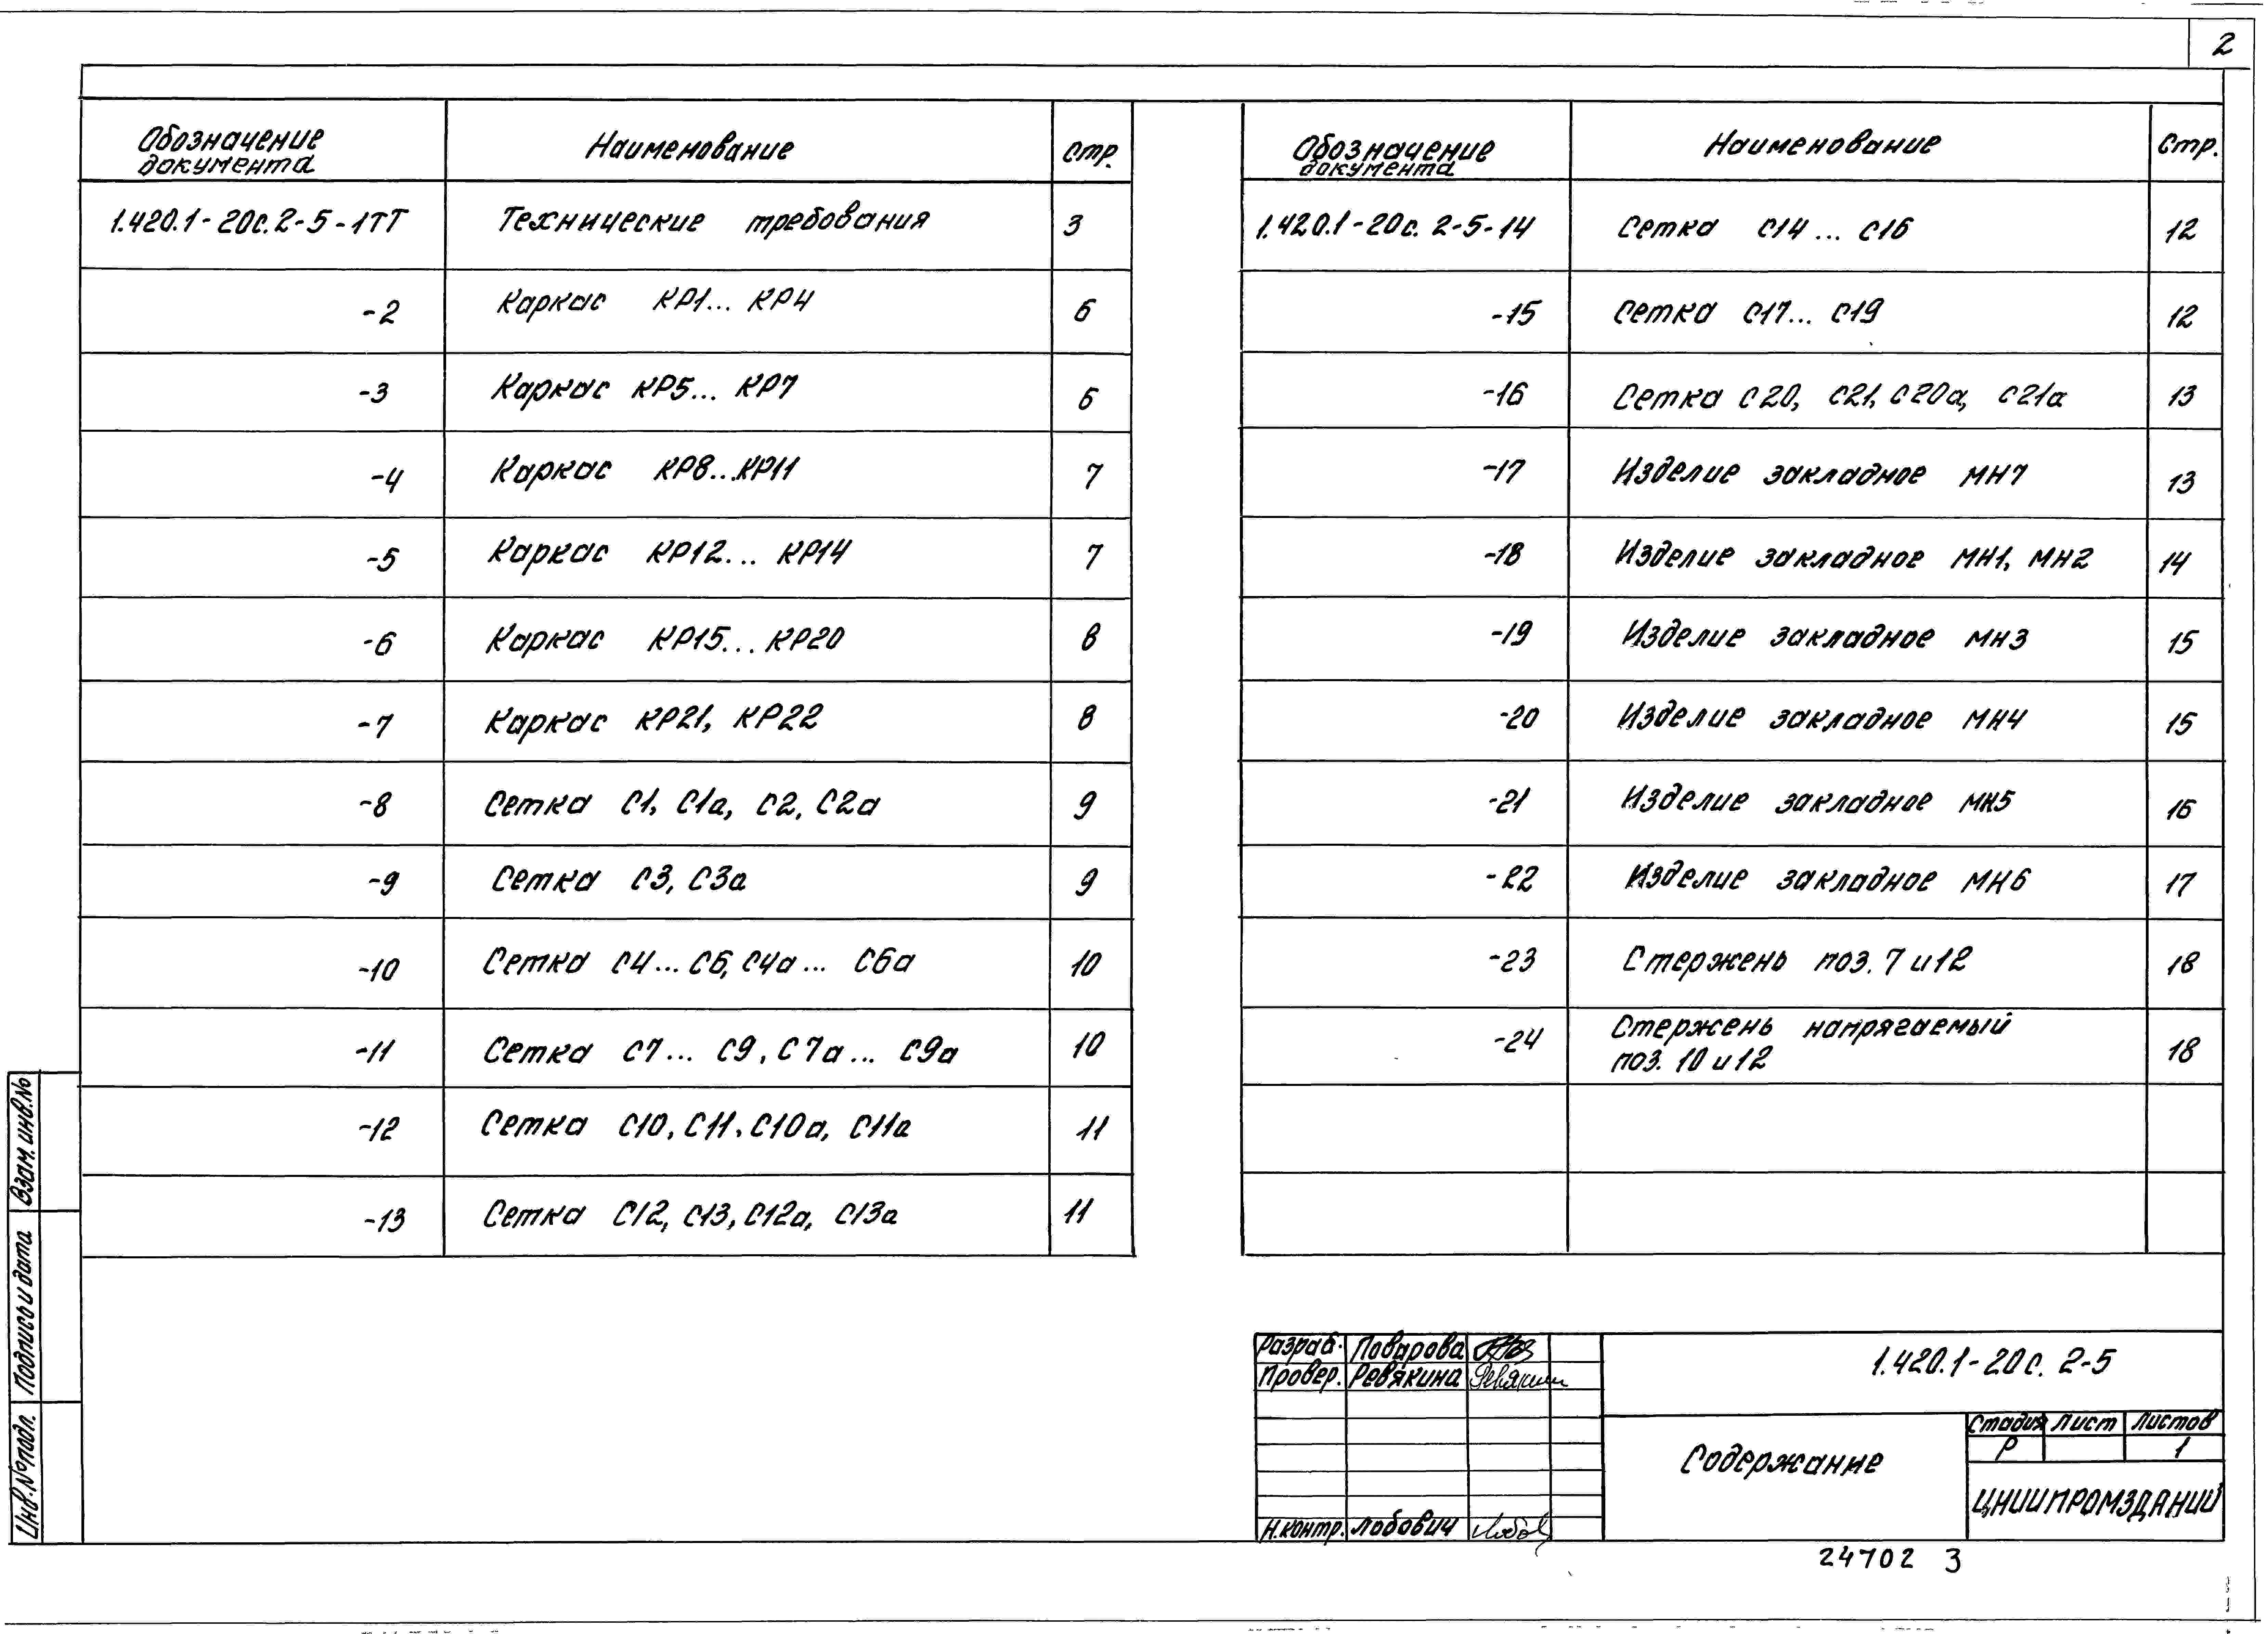 2
Обозначение документа Наименование Стр.
1.420.1-20с.2-5-1ТТ Технические требования 3
-2 Каркас КР1... КР4 6
-3 Каркас КР5... КР7 6
-4 Каркас КР8...КР11 7
-5 Каркас КР12... КР14 7
-6 Каркас КР15... КР20 8
-7 Каркас КР21, КР22 8
-8 Сетка С1, С1а, С2, С2а 9
-9 Сетка С3, С3а 9
-10 Сетка С4... С6, С4а... С6а 10
-11 Сетка С7... С9, С7а... С9а 10
-12 Сетка С10, С11, С10а, С11а 11
-13 Сетка С12, С13, С12а, С13а 11
Обозначение документа Наименование Стр.
1.420.1-20с. 2-5-14 Сетка С14... С16 12
-15 Сетка С17... С19 12
-16 Сетка С20, С21, С20а, С21а 13
-17 Изделие закладное МН7 13
-18 Изделие закладное МН1, МН2 14
-19 Изделие закладное МН3 15
-20 Изделие закладное МН4 15
-21 Изделие закладное МН5 16
-22 Изделие закладное МН6 17
-23 Стержень поз. 7 и 12 18
-24 Стержень напрягаемый
поз. 10 и 12 18
Взам. инв.№
Подпись и дата
Инв.№подл.
Разраб. Поварова
Провер. Ревякина
Н.контр. Лобович
1.420.1-20с. 2-5
Содержание
Стадия Лист Листов
Р 1
ЦНИИПРОМЗДАНИЙ
24702 3